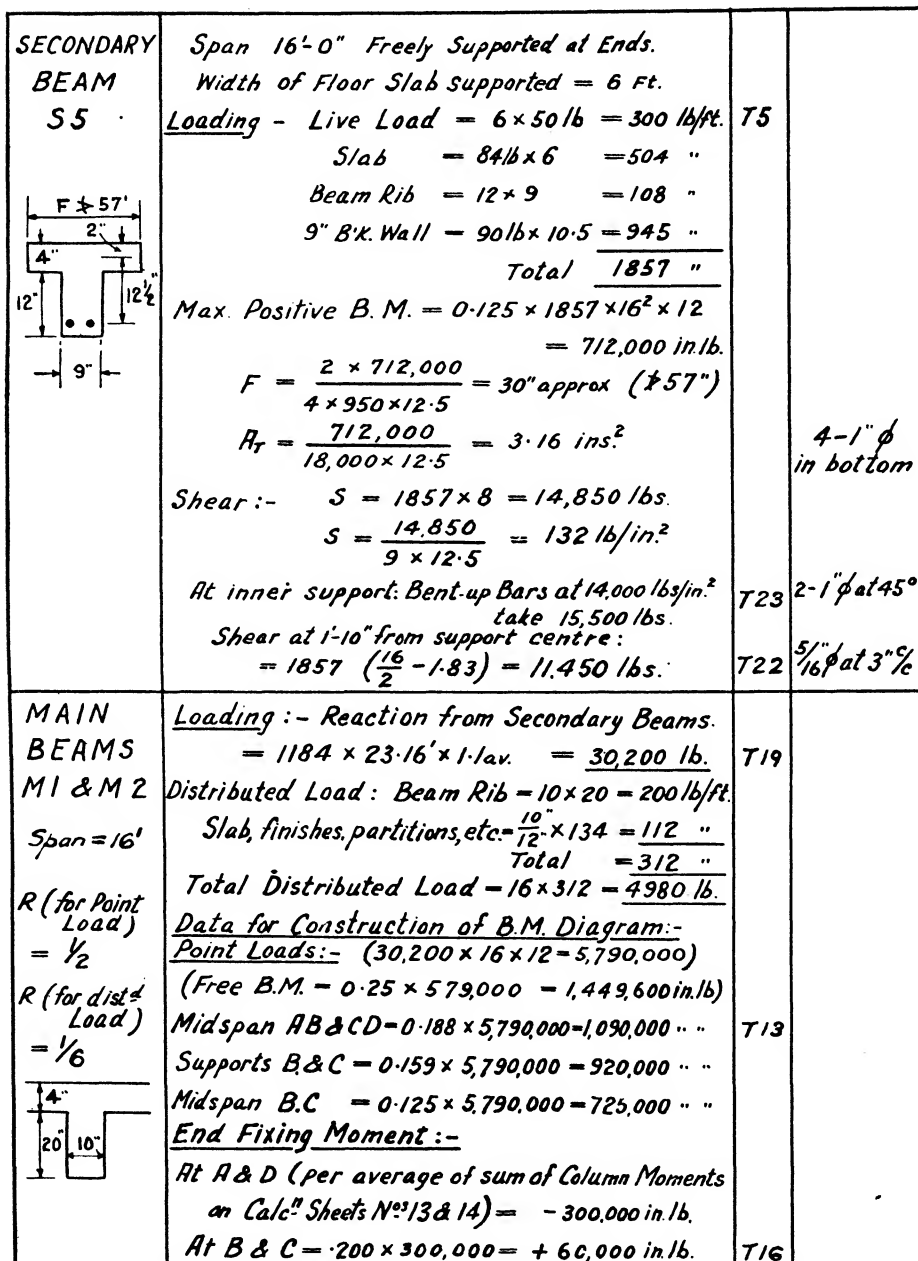 SECONDARY BEAM S5
Span 16'-0" Freely Supported at Ends.
Width of Floor Slab supported = 6 Ft.
Loading - Live Load = 6 × 50 lb = 300 lb/ft. T5
Slab = 84lb × 6 = 504 "
Beam Rib = 12 × 9 = 108 "
9" B'K. Wall = 90lb × 10·5 = 945 "
Total 1857 "
F ≯ 57'
2"
4"
12"
12½"
9"
Max. Positive B.M. = 0·125 × 1857 × 16² × 12
= 712,000 in.lb.
F = 2 × 712,000 / 4 × 950 × 12·5 = 30" approx (≯57")
A_T = 712,000 / 18,000 × 12·5 = 3·16 ins.²
4-1"ϕ
in bottom
Shear :- S = 1857 × 8 = 14,850 lbs.
S = 14,850 / 9 × 12·5 = 132 lb/in.²
At inner support: Bent-up Bars at 14,000 lbs/in.² T23 2-1"ϕ at 45°
take 15,500 lbs.
Shear at 1'-10" from support centre:
= 1857 (16/2 - 1·83) = 11.450 lbs. T22 5/16"ϕ at 3" c/c
MAIN
BEAMS
M1 & M2
Span = 16'
R (for Point
Load)
= ½
R (for distd
Load)
= 1/6
4"
20"
10"
Loading :- Reaction from Secondary Beams.
= 1184 × 23·16' × 1·1av. = 30,200 lb. T19
Distributed Load : Beam Rib = 10 × 20 = 200 lb/ft.
Slab, finishes, partitions, etc. = 10"/12 × 134 = 112 "
Total = 312 "
Total Distributed Load = 16 × 312 = 4980 lb.
Data for Construction of B.M. Diagram:-
Point Loads:- (30,200 × 16 × 12 = 5,790,000)
(Free B.M. = 0·25 × 579,000 = 1,449,600 in.lb)
Midspan AB & CD = 0·188 × 5,790,000 = 1,090,000 " " T13
Supports B.& C = 0·159 × 5,790,000 = 920,000 " "
Midspan B.C = 0·125 × 5,790,000 = 725,000 " "
End Fixing Moment :-
At A & D (per average of sum of Column Moments
on Calcn. Sheets Nos 13 & 14) = - 300,000 in.lb.
At B & C = ·200 × 300,000 = + 60,000 in.lb. T16